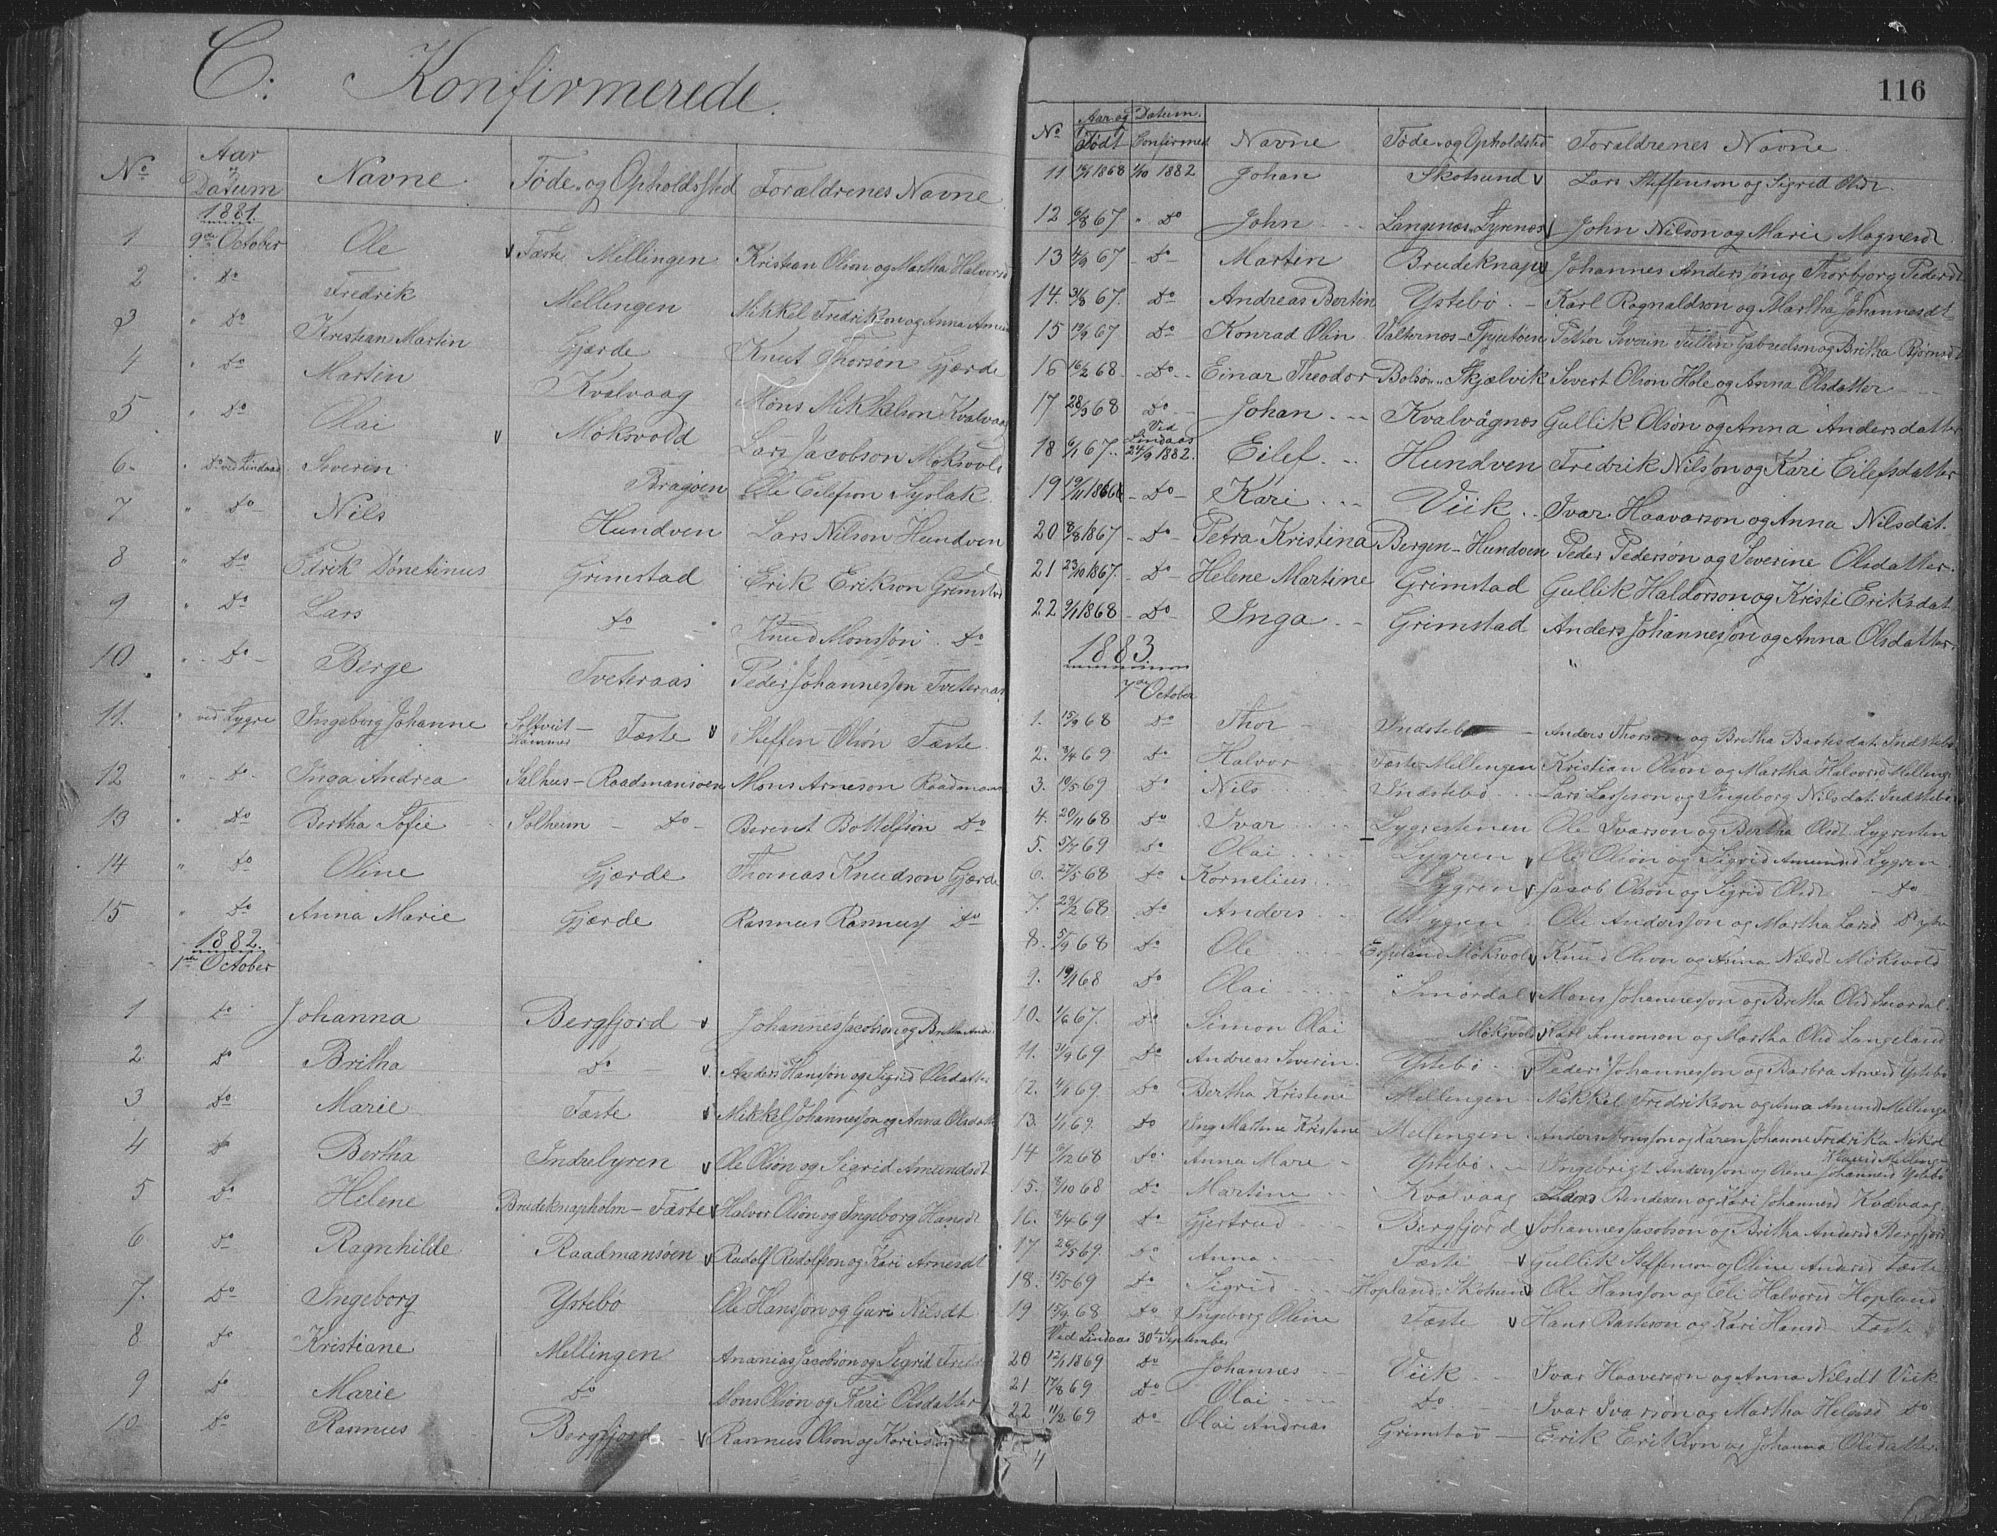 C: Konfirmerede.
No Aar og Datum Navne Føde og Opholdssted Forældrenes Navne
1881.
1 9de October Ole Fæste Mellingen Kristian Olson og Martha Halvorsd
2 " Do Fredrik Mellingen Mikkel Fredrikson og Anna
3 " Do Kristian Martin Gjerde Knut Thorson Gjærde
4 " Do Martin Kvalvaag Mons Mikkelson Kvalvaag
5 " Do Olai Møksvold Lars Jacobson Møksvold
6 " Do ved Lindaas Severin Bragøen Ole Eilefson
7 " Do Nils Hundven Lars Nilson Hundven
8 " Do Dønetinus Grimstad Erik Erikson Grimstad
9 " Do Lars Do Knud Monssøn Do
10 " Do Berge Tveteraas Peder Johannessøn Tveteraas
11. " ved Lygre Ingeborg Johanne Fæste Steffen Olsøn Fæste
12 " Do Inga Andrea Salhus - Raadmansøen Mons Arneson Raadmans
13 " Do Bertha Sofie Solheim - Do - Berent Bottelfson Do
14 " Do Oline Gjærde Thomas Knudson Gjærde
15 " Do Anna Marie Gjærde Rasmus Rasmus Do
1882.
1ste October
1 Do Johanna Bergfjord Johannes Jacobson og Bretha
2 Do Britha Do Anders Hanssøn og Sigrid Olsdatter
3 Do Marie Fæste Mikkel Johannesson og Anna Olsdatt
4 Do Bertha Indrelyren Ole Olsøn og Sigrid Amundsdt
5 Do Helene Brudeknapholm - Fæste Halvor Olsøn og Ingeborg Hansdt
6 Do Ragnhilde Raadmansøen Rudolf Rudolfson og Kari Arnesdt
7. Do Ingeborg Ystebø Ole Hanssøn og Guri Nilsdt
8 Do Kristiane Mellingen Ananias Jacobson og Sigrid
9 Do Marie Do Mons Olson og Kari Olsdatter
10 Do Rasmus Bergfjord Rasmus Olson og
116
No Aar og Datum. Født Confirmed Navne Føde og Opholdsted Foraldrenes Navne
11 1868 1/10 1882 Johan Skotsund Lars Steffenson og Sigrid Olsdt
12 6/8 67 " Do John Langenæs Lyrenes John Nilson og Marie Magnesdt
13 4/9 67 - Do - Martin Brudeknap Johannes Anderssøn og Thorbjorg Pedersdt
14. 31/8 67. Do Andreas Bertin Ystebø Karl Ragnaldson og Martha Johannesdt
15 67 Do Konrad Olin Valternes Petter Severin Tullin Gabrielson og Britha Bjørnsdt
16 16/2 68 - Do - Einar Theodor Bolsøn Skjælvik Sivert Olson Hole og Anna Olsdatter
17 28/3 68 Do Johan Kvalvågnes Gullik Olsøn og Anna Andersdatter
18 6/1 67. Ved Lindaas 24/9 1882. Eilef Hundven Fredrik Nilsson og Kari Eilefsdatter
19 - Do - Kari Viik Ivar Haavarson og Anna Nilsdat.
20 8/8 1867 - Do - Petra Kristina Bergen - Hundven Peder Pedersøn og Severine Olsdatter
21 23/10 1867. Do Helene Martine Grimstad Gullik Haldorson og Kristi Eriksdat
22 9/1 1868 - Do - Inga Grimstad Anders Johannesson og Anna Olsdatter
1883
7de October
1. 15/9 68 Do Thor Indstebø Anders Thorson og Britha Indstebø
2. 3/4 69 Do Halvor Fæste Mellingen Kristian Olson og Martha Halvorsd Mellinge
3. 10/5 69 Do Nils Indstebø Lars Larsson og Ingeborg Nilsdat. Indstebø
4. 20/11 68 Do Ivar Lygrestenen Ole Ivarson og Bertha Olsdt Lygresten
5. 5/7 69 Do Olai Lygren Ole Olsøn og Sigrid Amundsd Lygren
6. 27/5 68 Do Kornelius Lygren Jacob Olson og Sigrid Olsdt - Do -
7. 29/2 68 Do Anders Utlygren Ole Andersson og Martha Larsd
8. 5/9 68 Do Ole Espeland Møksvold Knud Olson og Anna Nilsdt Møksvold
9. 68 Do Olai Smørdal Mons Johannesson og Bretha Olsd Smørdal
10. 1/6 67. Do Simon Olai Møksvold Karl Simonson og Martha Olsd Langeland
11. 69 Do Andreas Severin Ystebø Peder Johannesson og Barbra Arnesd Ystebø
12. 4/1 69. Do Bertha Kristine Mellingen Mikkel Fredrikson og Anna Amunsd Mellinge
13. 1/1 69. Do Ing Martine Kristene Mellingen Anders Monsson og Karen Johanne Fredrika
14 9/12 68 Do Anna Mare Ystebø Ingebrigt Andersson og Oline Johannesd Ystebø
15. 3/10 68 Do Martine Kvalvaag Lars Andersen og Kari Johannesd Kvalvaag
16. 3/4 69 Do Gjertrud Bergfjord Johannes Jacobson og Britha Andersd Bergfjord
17. 26/5 69. Do Anna Fæste Gullik Steffenson og Oline Andersd Fæste
18. 15/5 69 Do Sigrid Hopland Skotsun Ole Hansson og Eli Halvorsd Hopland
19 15/9 68 Do Ingeborg Oline Fæste Hans og Kari Hansd Fæste
Ved Lindaas 30te September
20 12/1 1869 Do Johannes Viik Ivar Haaverson og Anna Nilsdt Viik
21 17/8 69 Do Olai Do Ivar Ivarson og Martha Helgesd Do
22 11/2 69 Do Olai Andreas Grimstad Erik Erikson og Johanna Olsdatter